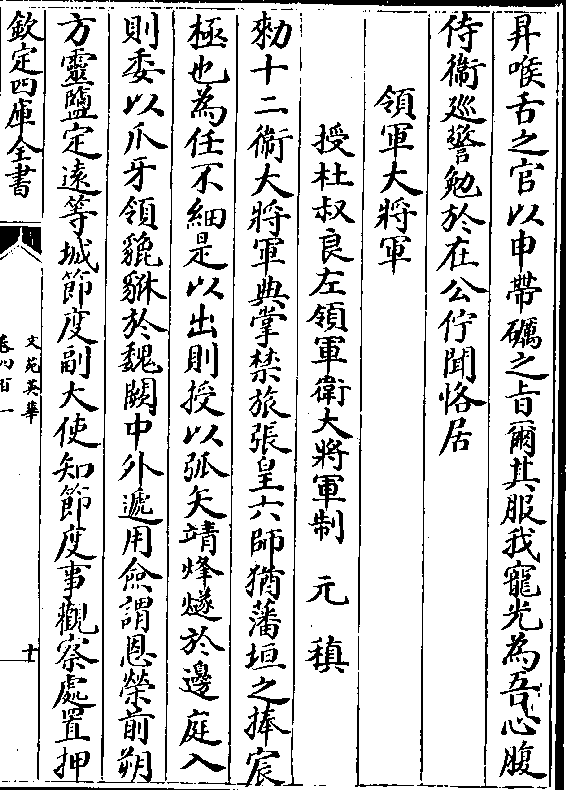 昇喉舌之官以申帶礪之㫖爾其服我寵光為吾心腹
侍衛廵警勉於在公佇聞恪居
領軍大將軍
授杜叔良左領軍衛大將軍制 元稹
勑十二衛大將軍典掌禁旅張皇六師猶藩垣之捧宸
極也為任不細是以出則授以弧矢靖烽燧於邊庭入
則委以爪牙領貔貅於魏闕中外遞用僉謂恩榮前朔
方靈鹽定逺等城節度副大使知節度事觀察處置押
欽定四庫全書
文苑英華
卷四百一
十